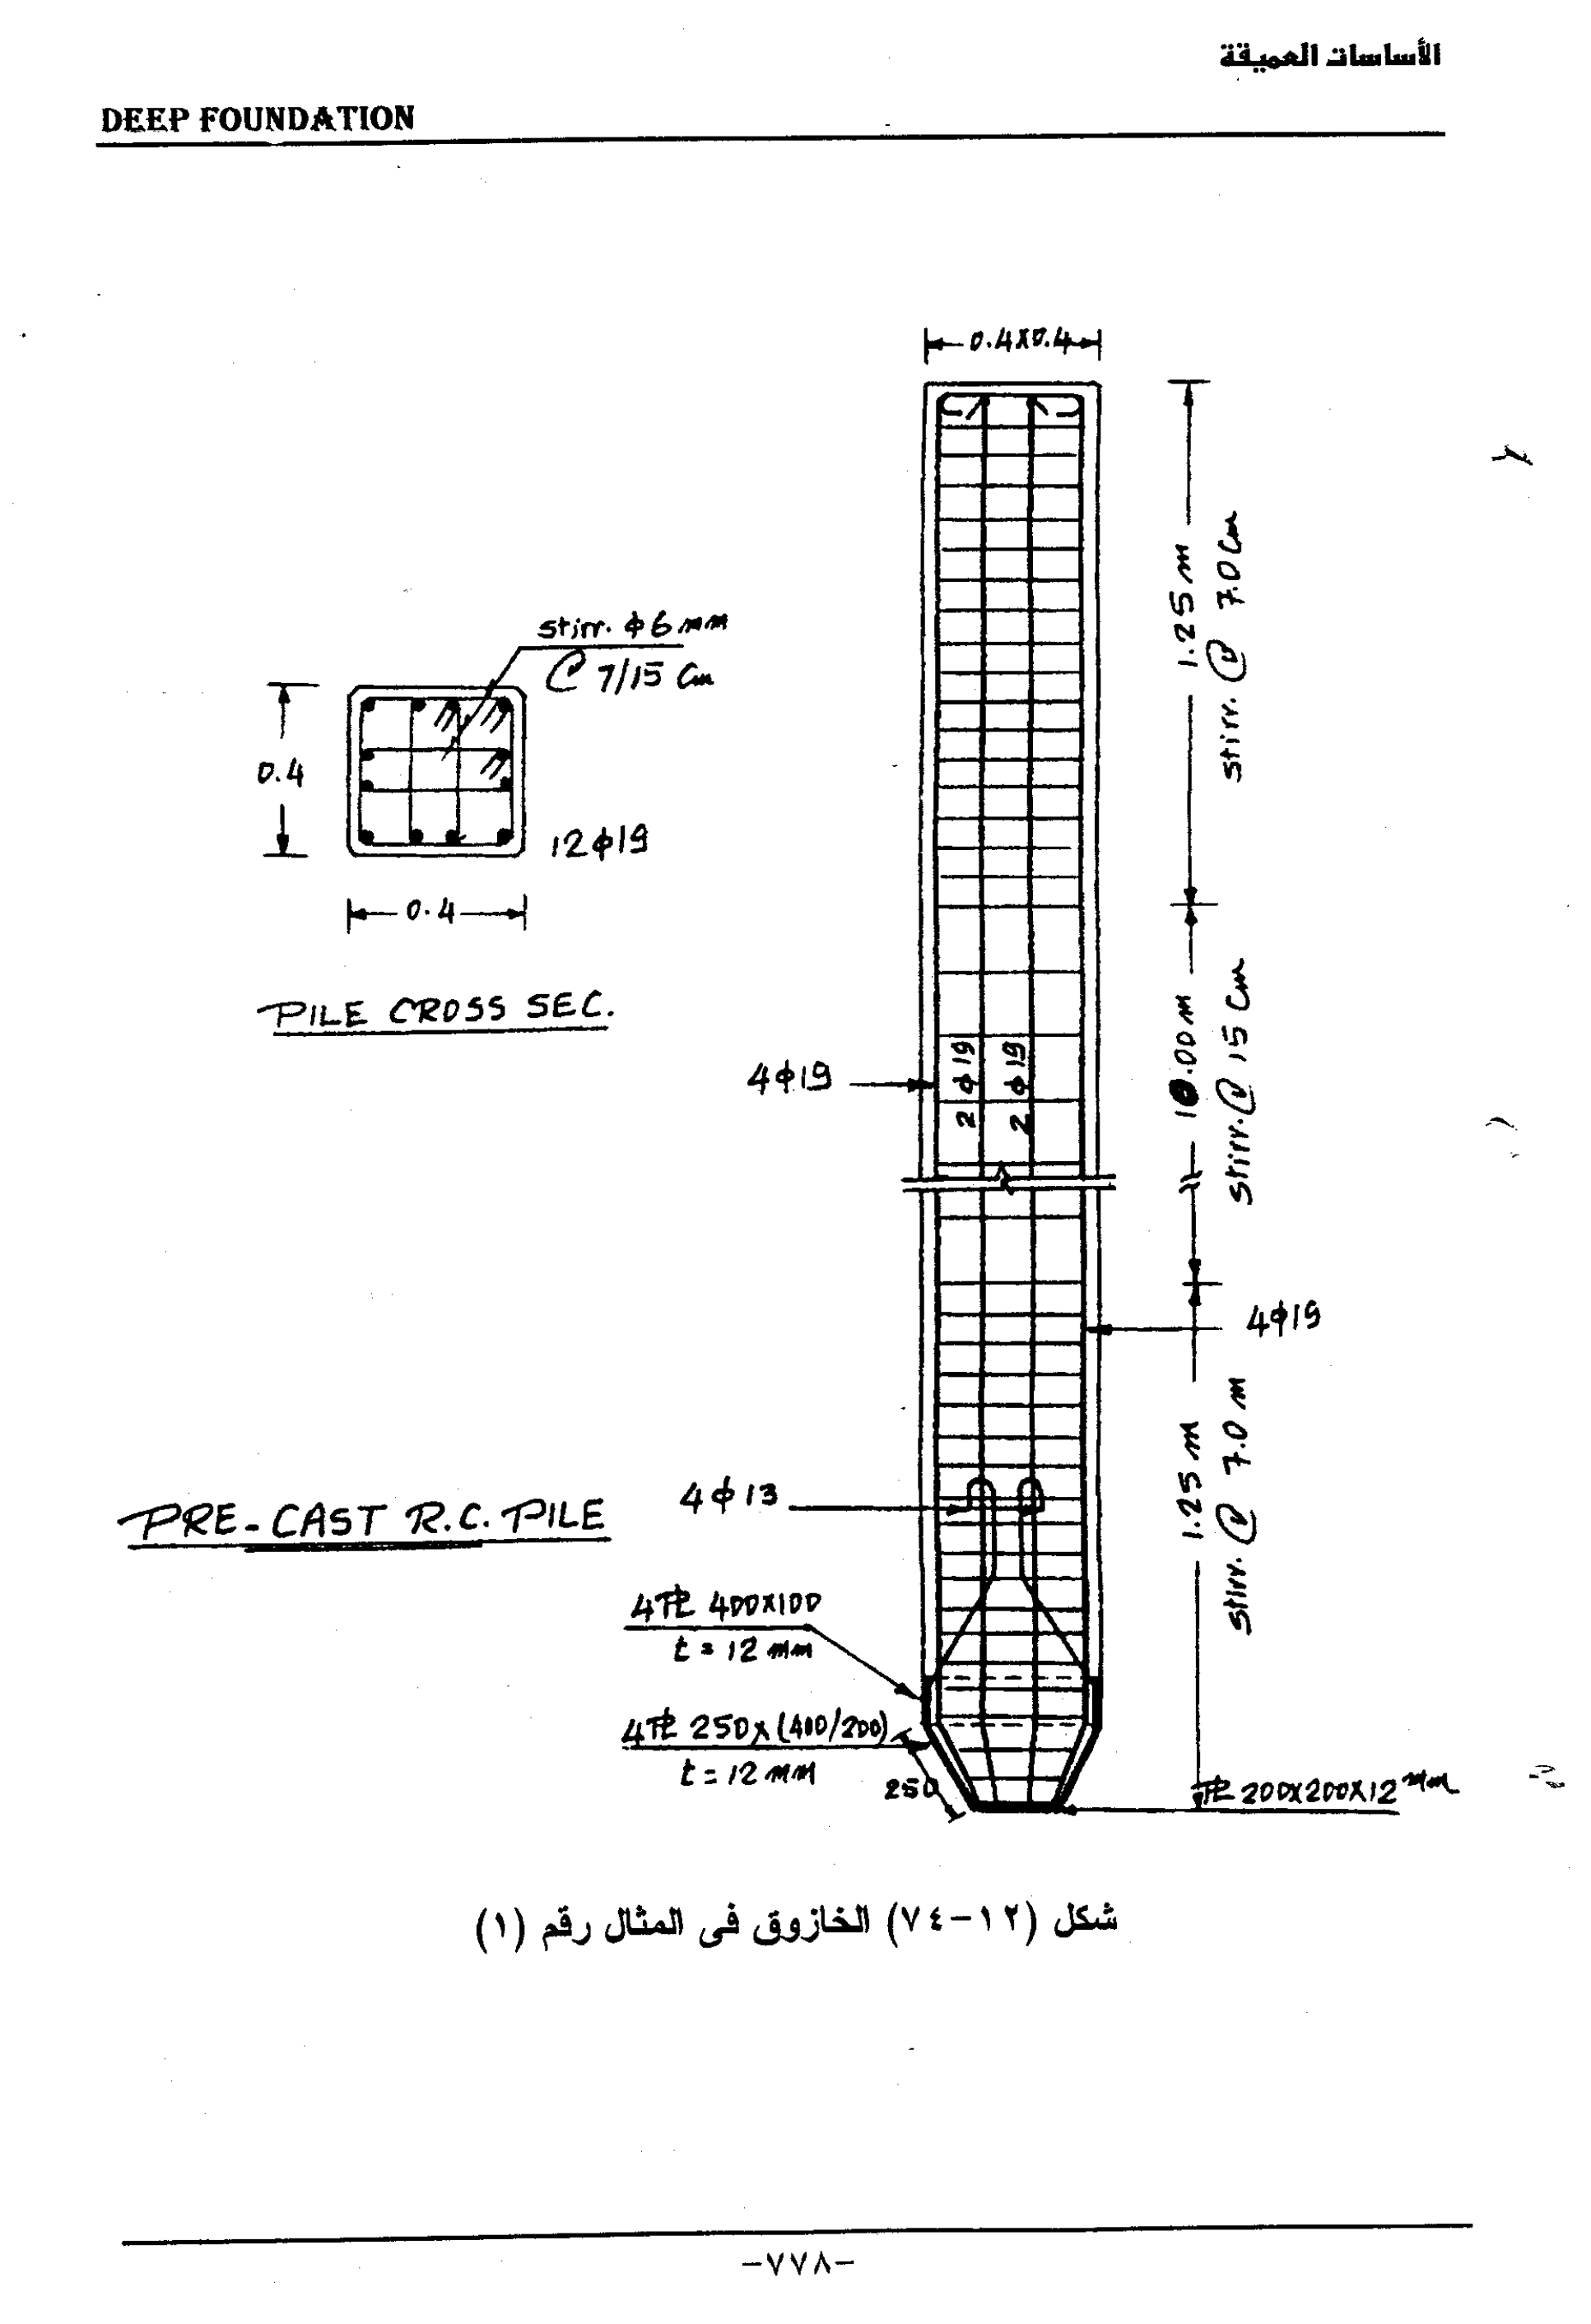 الأساسات العميقة
DEEP FOUNDATION
0.4x0.4
1.25 m
stirr. @ 7.0 Cm
stirr. ϕ6 mm
@ 7/15 Cm
0.4
12ϕ19
0.4
PILE CROSS SEC.
10.00 m
stirr. @ 15 Cm
4ϕ19
2ϕ19
2ϕ19
4ϕ19
1.25 m
stirr. @ 7.0 m
4ϕ13
PRE-CAST R.C. PILE
4PL 400x100
t = 12 mm
4PL 250x(400/200)
t = 12 mm
250
PL 200x200x12 mm
شكل (١٢-٧٤) الخازوق فى المثال رقم (١)
-٧٧٨-